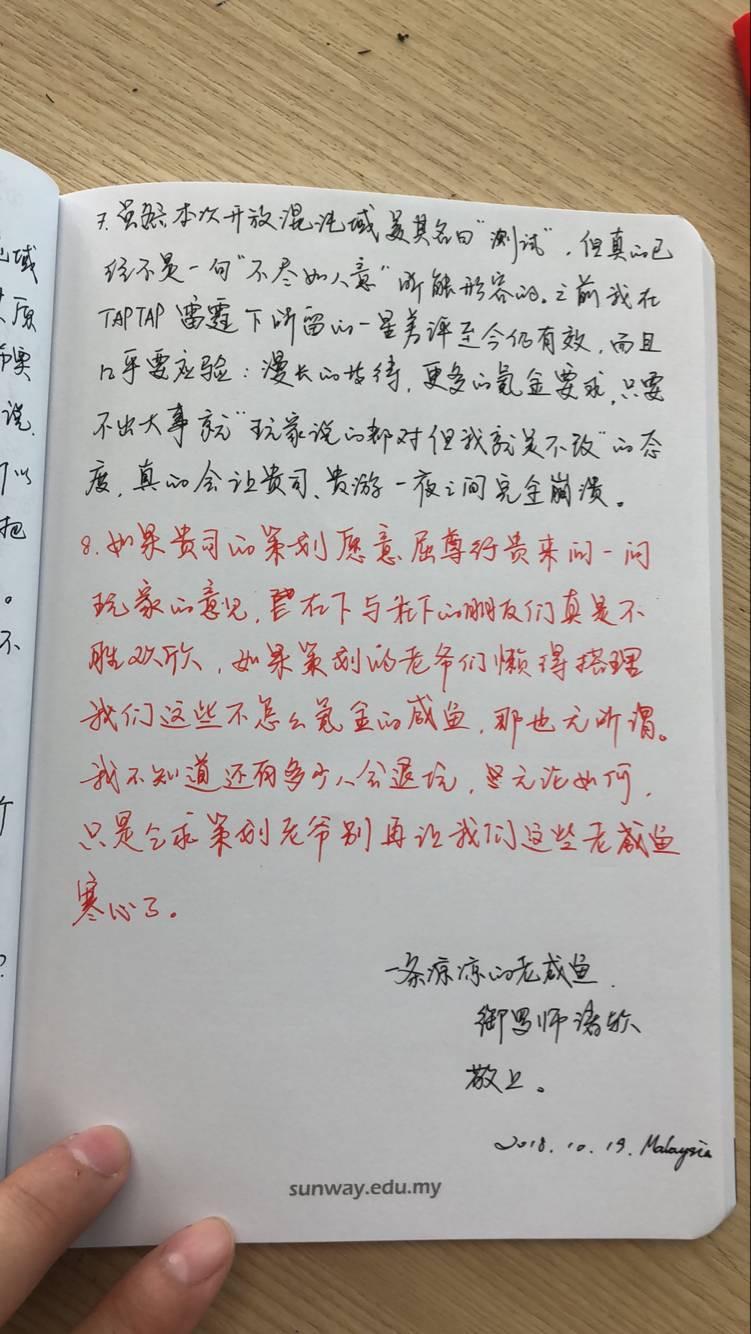 域
原
说.
可以
把
。
不
个
?
7. 虽然本次开放混沌域美其名曰“测试”，但真的已
经不是一句“不尽如人意”所能形容的。之前我在
TAPTAP 雷霆下所留的一星差评至今仍有效，而且
几乎要应验：漫长的等待，更多的氪金要求，只要
不出大事就“玩家说的都对但我就是不改”的态
度，真的会让贵司、贵游一夜之间完全崩溃。
8. 如果贵司的策划愿意屈尊行贵来问一问
玩家的意见，在下与在下的朋友们真是不
胜欢欣，如果策划的老爷们懒得搭理
我们这些不怎么氪金的咸鱼，那也无所谓。
我不知道还有多少人会退坑，但无论如何，
只是乞求策划老爷别再让我们这些老咸鱼
寒心了。
一条凉凉的老咸鱼.
御
敬上。
2018.10.19. Malaysia
sunway.edu.my